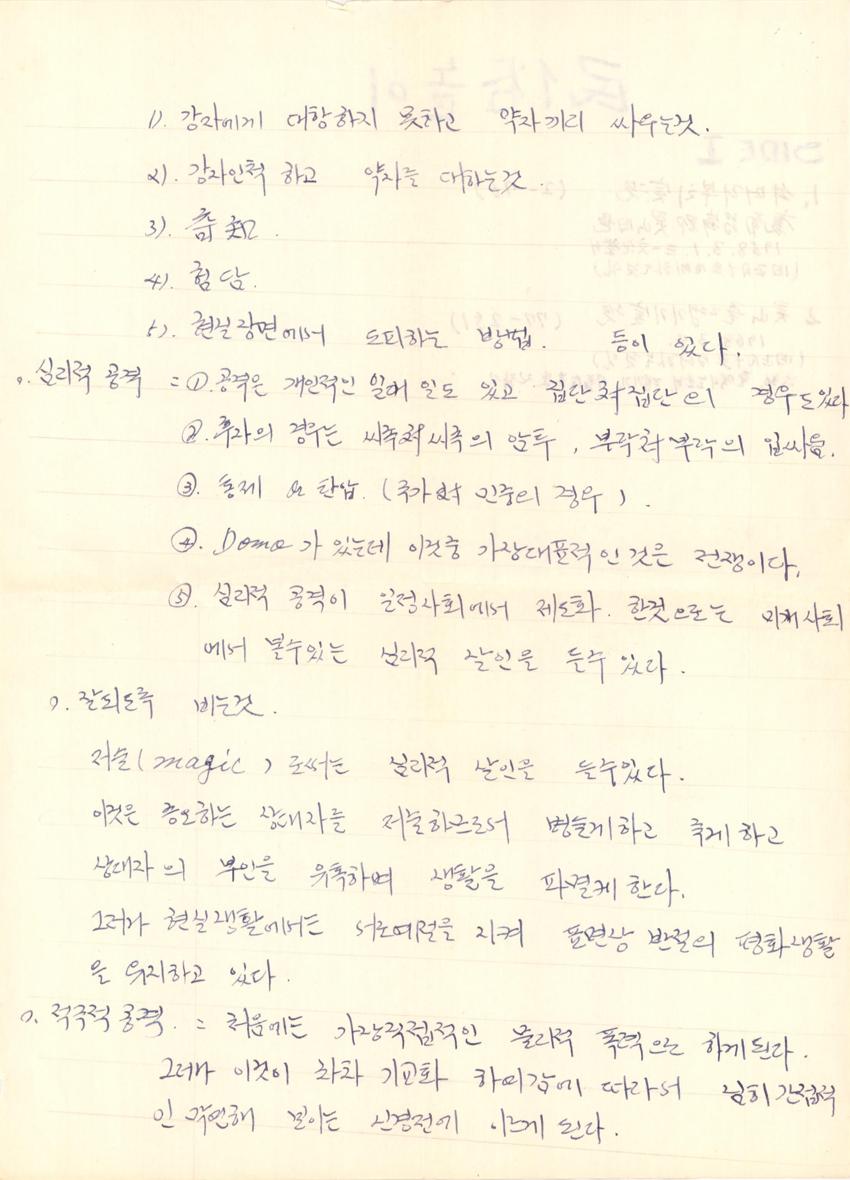 1). 강자에게 대항하지 못하고 약자끼리 싸우는것.
2). 강자인척 하고 약자를 대하는것.
3).
4). 험담.
5). 현실장면에서 도피하는 방법. 등이 있다.
○. 심리적 공격 = ①. 공격은 개인적인 일에 일도 있고 집단対집단의 경우도있다
②. 후자의 경우는 씨족対씨족의 암투, 부락対부락의 입싸움.
③. 통제 & 탄압. (국가対 민중의 경우).
④. Domo가 있는데 이것중 가장대표적인 것은 전쟁이다.
⑤. 심리적 공격이 일정사회에서 제도화. 한것으로는 미개사회
에서 볼수있는 심리적 살인을 들수 있다.
○. 잘되도록 비는것.
저술(magic)로써는 심리적 살인을 들수있다.
이것은 증오하는 상대자를 저술하므로서 병들게하고 죽게 하고
상대자의 부인을 유혹하며 생활을 파멸케 한다.
그러나 현실생활에서는 서로예절을 지켜 표면상 평화생활
을 유지하고 있다.
○. 적극적 공격. = 처음에는 가장직접적인 물리적 폭력으로 하게된다.
그러나 이것이 차차 기교화 하여감에 따라서 간접적
인 보이는 신경전에 이르게 된다.